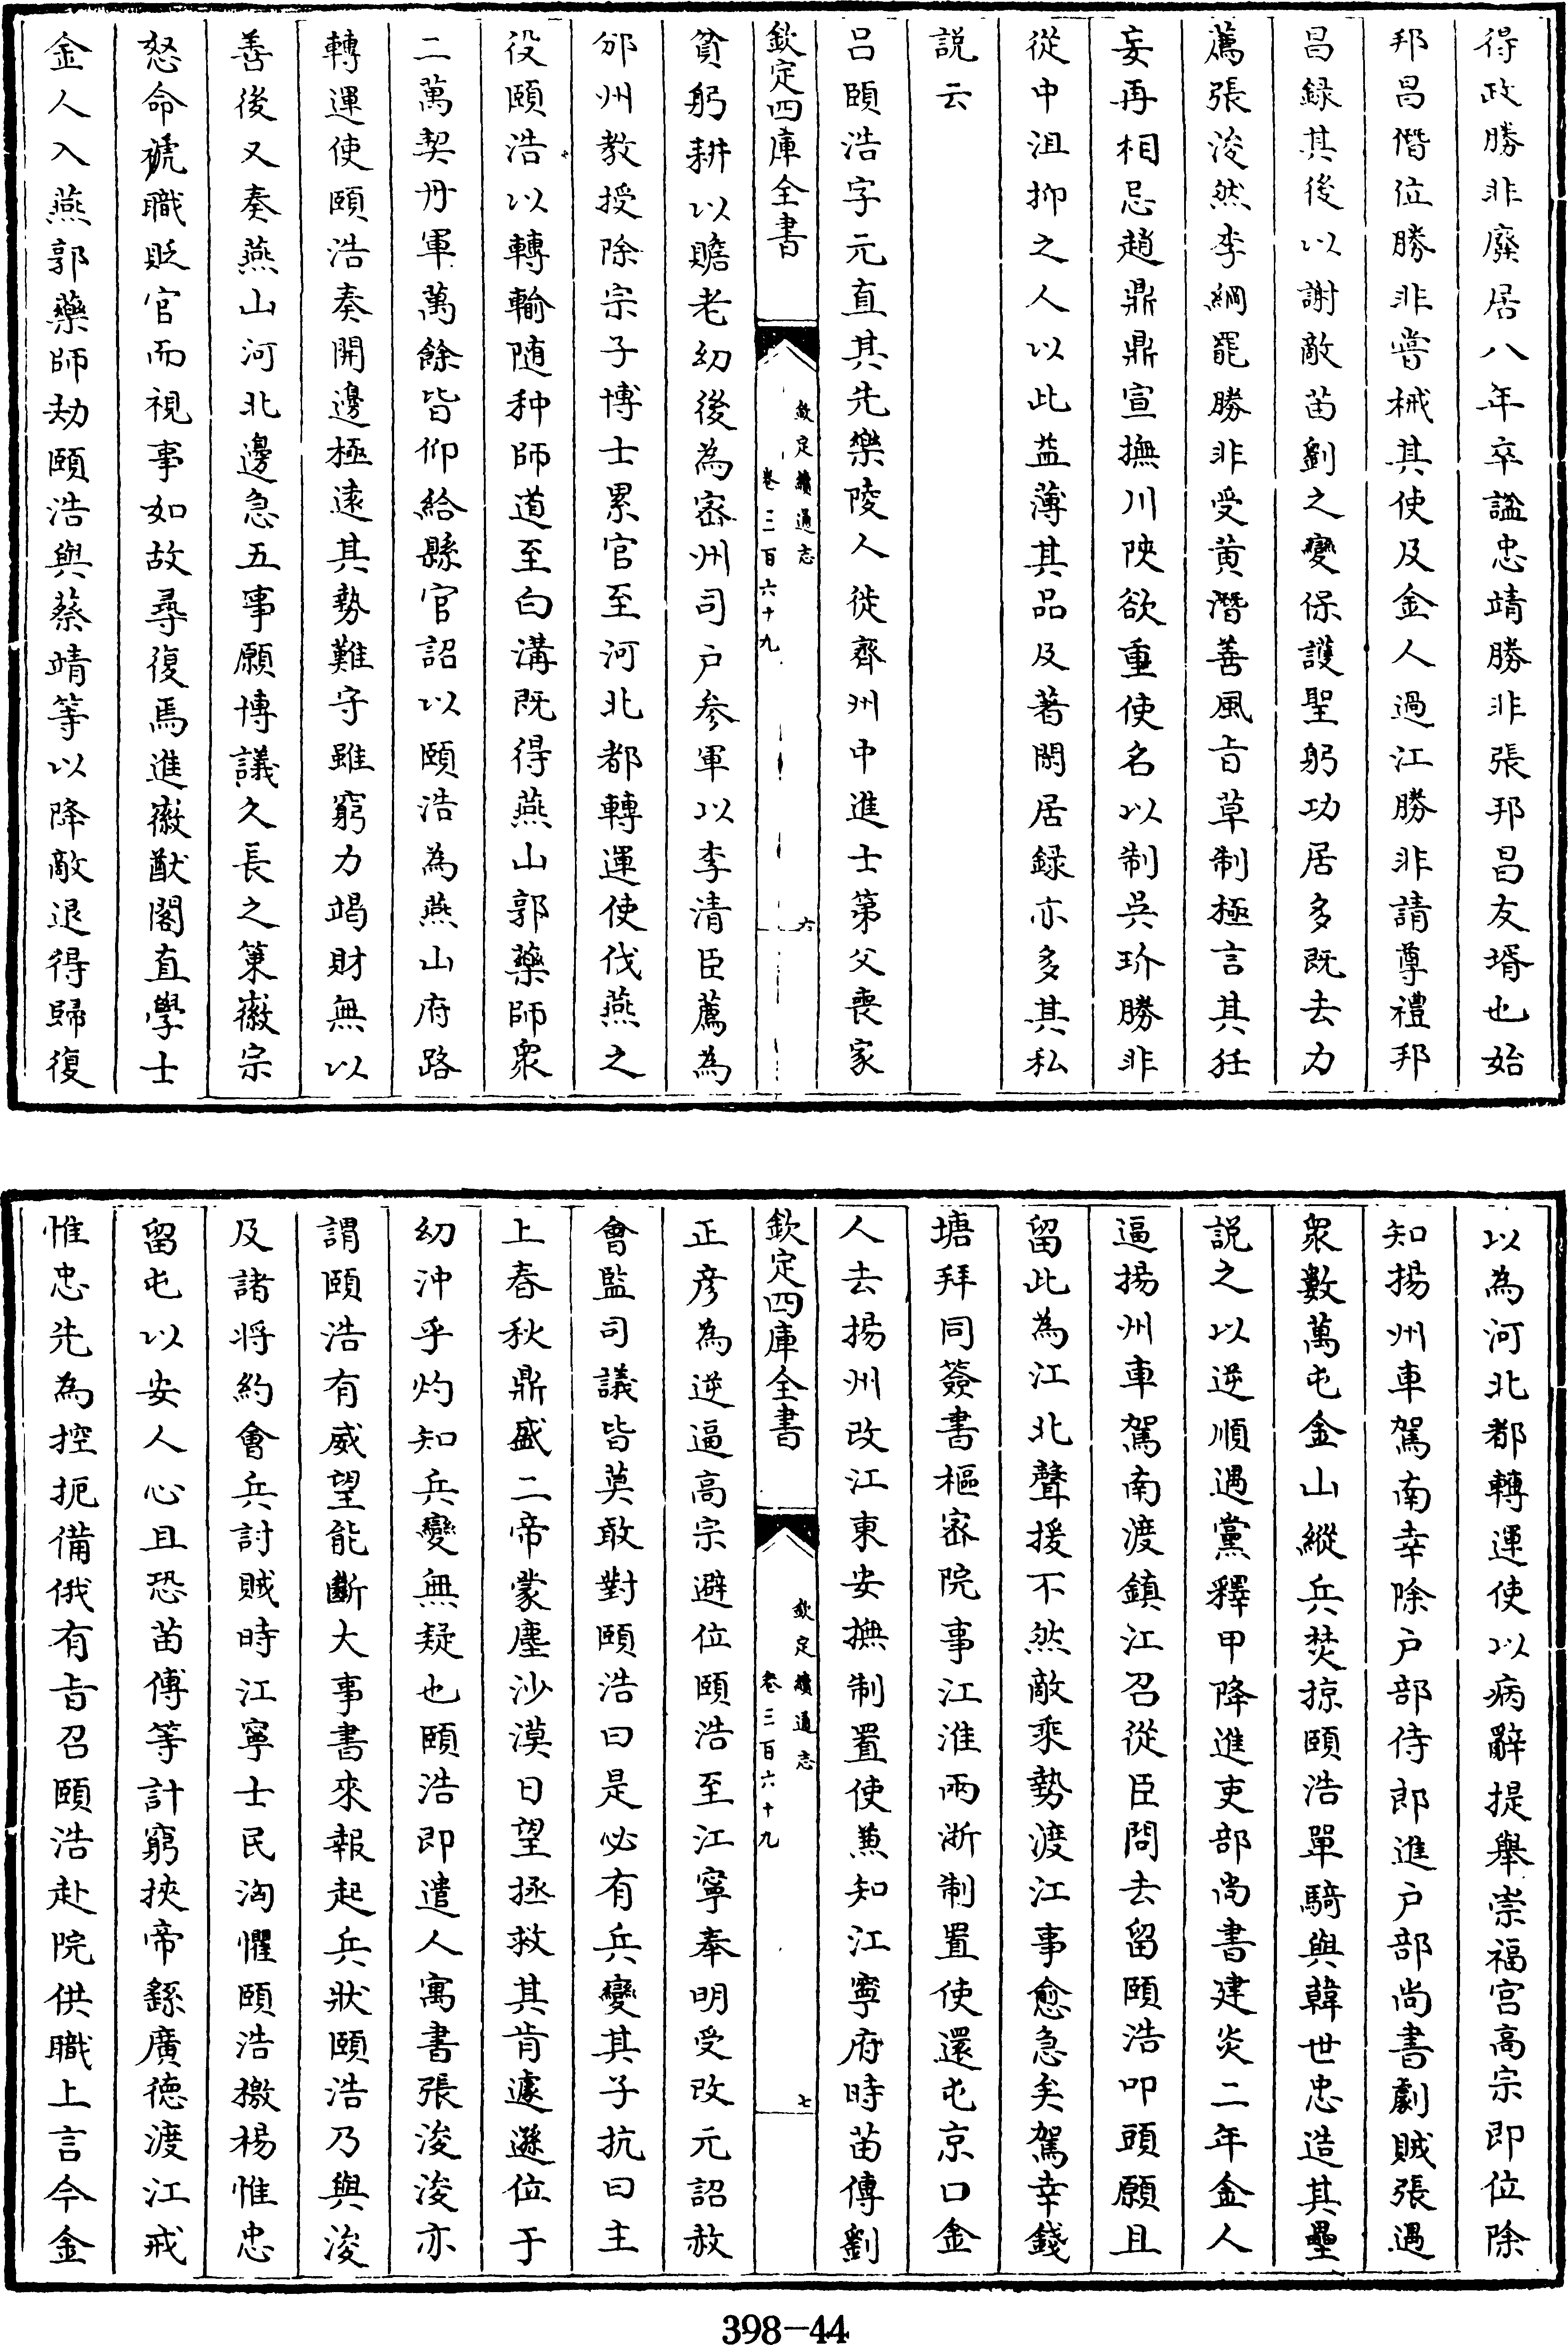 得政勝非廢居八年卒謚忠靖勝非張邦昌友壻也始
邦昌僭位勝非嘗械其使及金人過江勝非請尊禮邦
昌録其後以謝敵苗劉之變保護聖躬功居多既去力
薦張浚然李綱罷勝非受黄潛善風㫖草制極言其狂
妄再相忌趙鼎鼎宣撫川陜欲重使名以制吳玠勝非
從中沮抑之人以此益薄其品及著閑居録亦多其私
説云
吕頤浩字元直其先樂陵人徙齊州中進士第父喪家
欽定四庫全書
欽定續通志
卷三百六十九
六
貧躬耕以贍老幼後為密州司户參軍以李清臣薦為
邠州教授除宗子博士累官至河北都轉運使伐燕之
役頤浩以轉輸随种師道至白溝既得燕山郭藥師衆
二萬契丹軍萬餘皆仰給縣官詔以頤浩為燕山府路
轉運使頤浩奏開邊極逺其勢難守雖窮力竭財無以
善後又奏燕山河北邊急五事願博議久長之策徽宗
怒命褫職貶官而視事如故尋復焉進徽猷閣直學士
金人入燕郭藥師劫頤浩與蔡靖等以降敵退得歸復
以為河北都轉運使以病辭提舉崇福宫高宗即位除
知揚州車駕南幸除户部侍郎進户部尚書劇賊張遇
衆數萬屯金山縱兵焚掠頤浩單騎與韓世忠造其壘
説之以逆順遇黨釋甲降進吏部尚書建炎二年金人
逼揚州車駕南渡鎮江召從臣問去留頤浩叩頭願且
留此為江北聲援不然敵乘勢渡江事愈急矣駕幸錢
塘拜同簽書樞密院事江淮兩浙制置使還屯京口金
人去揚州改江東安撫制置使兼知江寧府時苗傅劉
欽定四庫全書
欽定續通志
卷三百六十九
七
正彦為逆逼高宗避位頤浩至江寧奉明受改元詔赦
會監司議皆莫敢對頤浩曰是必有兵變其子抗曰主
上春秋鼎盛二帝蒙塵沙漠日望拯救其肯遽遜位于
幼沖乎灼知兵變無疑也頤浩即遣人寓書張浚浚亦
謂頤浩有威望能斷大事書來報起兵狀頤浩乃與浚
及諸将約會兵討賊時江寧士民洶懼頤浩檄楊惟忠
留屯以安人心且恐苗傅等計窮挾帝繇廣德渡江戒
惟忠先為控扼備俄有㫖召頤浩赴院供職上言今金
398-44